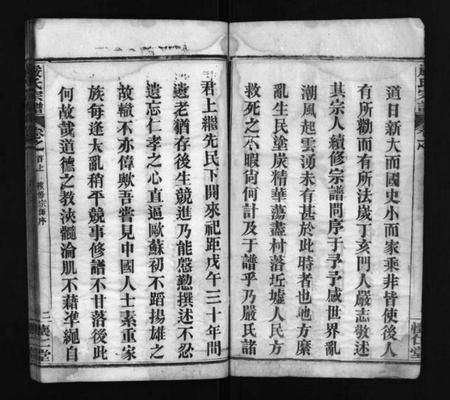 道日新大而國史小而家乘非皆使後人
有所勸而有所法歲丁亥門人嚴志敦述
其宗人續修宗譜問序于予予感世界亂
潮風起雲湧未有甚於此時者也地方糜
亂生民塗炭精華蕩盡村落近墟人民方
救死之不暇尙何計及于譜乎乃嚴氏諸
君上繼先民下開來祀距戊午三十年間
遺老猶存後生競進乃能慇懃撰述不忍
遺忘仁孝之心直逼歐蘇初不蹈揚雄之
故轍不亦偉歟吾嘗見中國人士素重家
族每逢大亂稍平競事修譜不甘落後此
何故哉道德之教浹髓淪肌不藉準繩自
嚴氏宗譜 卷之首上 二